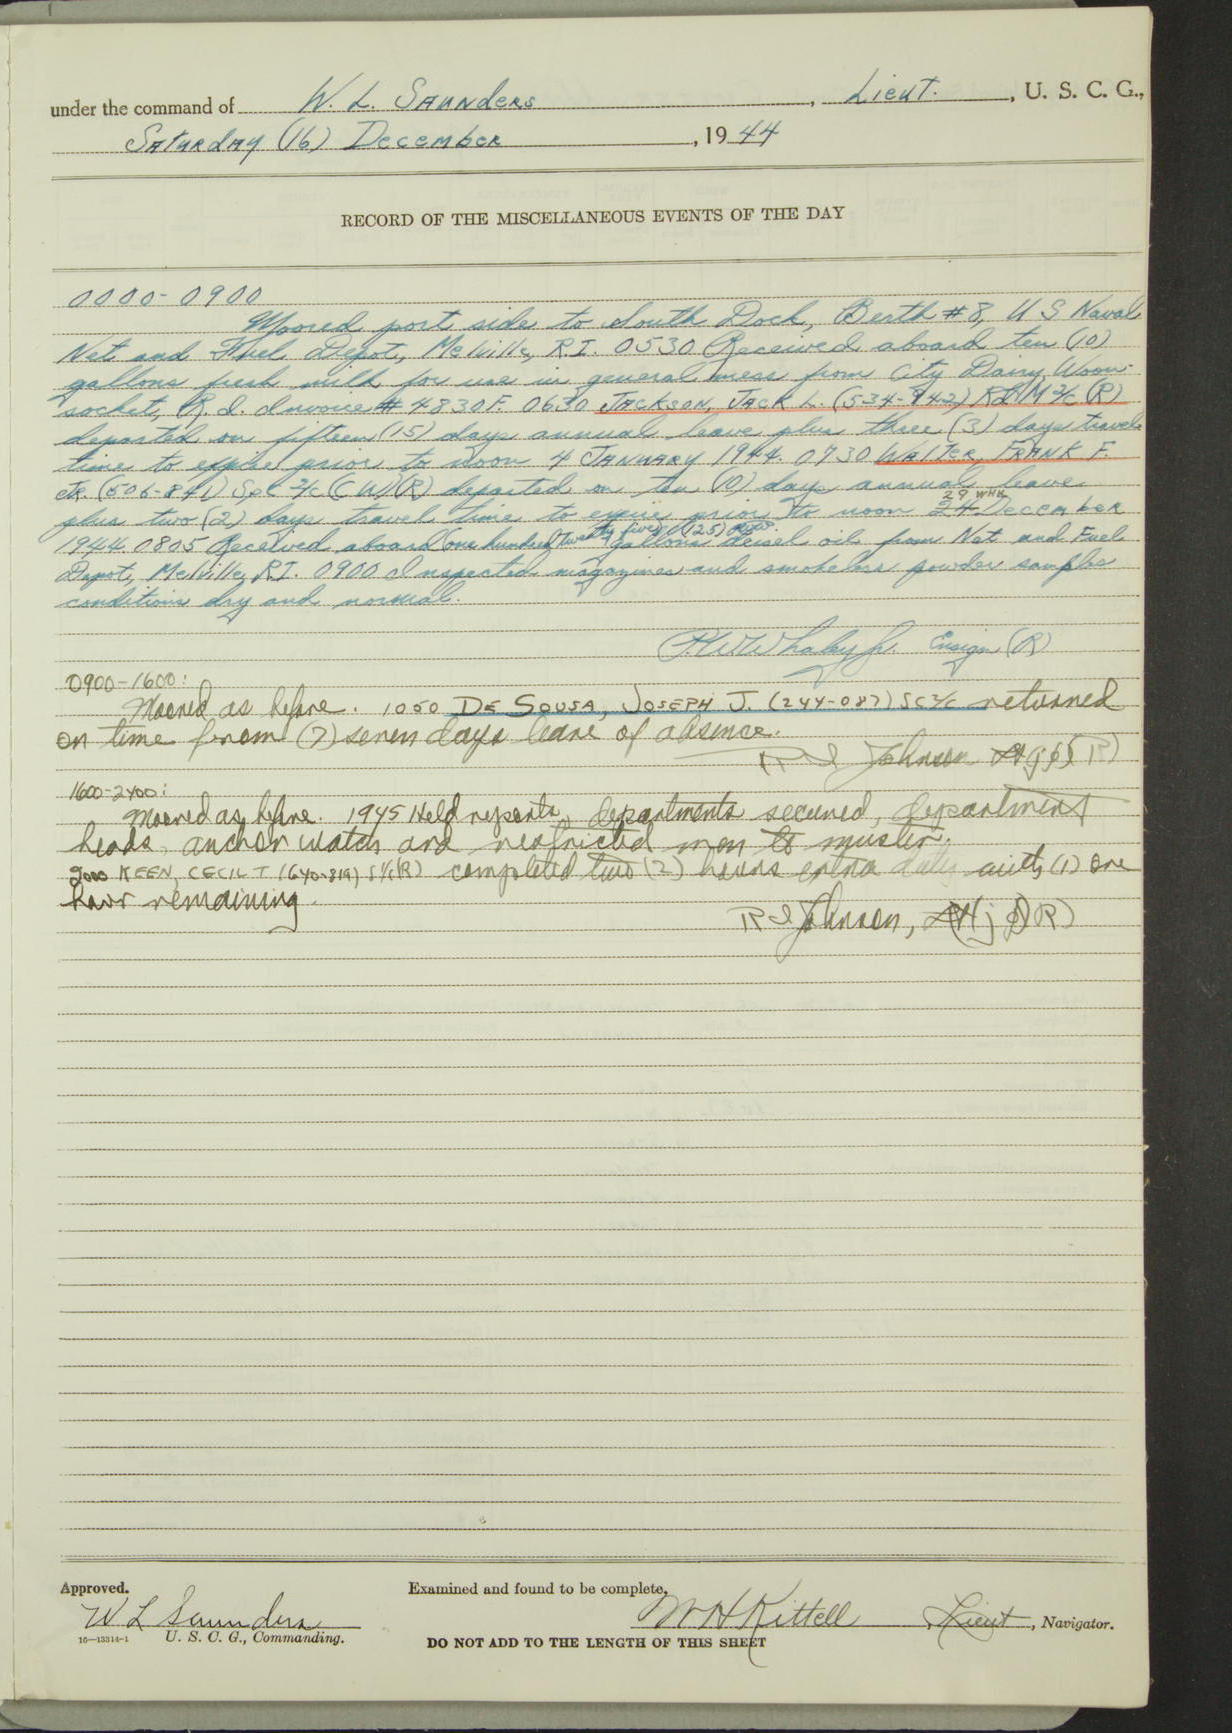 under the command of W. L. Saunders, Lieut., U. S. C. G.,
Saturday (16) December, 1944
RECORD OF THE MISCELLANEOUS EVENTS OF THE DAY
0000-0900
Moored port side to South Dock, Berth #8, U S Naval
Net and Fuel Depot, Melville, R.I. 0530 Received aboard ten (10)
gallons fresh milk for use in general mess from City Dairy, Woon-
socket, R. I. Invoice # 4830F. 0630 JACKSON, JACK L. (534-942) RdM 2/c (R)
departed on fifteen (15) days annual leave plus three (3) days travel
time to expire prior to noon 4 JANUARY 1944. 0730 WALTER, FRANK F.
Jr. (506-841) Sp 2/c (CW)(R) departed on ten (10) days annual leave
29 WHK
plus two (2) days travel time to expire prior to noon 24 December
1944 0805 Received aboard one hundred twenty five (125) gallons deisel oil from Net and Fuel
Depot, Melville, R.I. 0900 Inspected magazines and smokeless powder samples
conditions dry and normal.
Whaley Jr. Ensign (R)
0900-1600:
Moored as before. 1050 DE SOUSA, JOSEPH J. (244-087) SC 2/c returned
on time from (7) seven days leave of absence.
R I Johnson Lt (jg) (R)
1600-2400:
Moored as before. 1945 Held reports, departments secured, department
heads, anchor watch and restricted men to muster.
2000 KEEN, CECIL T (640-819) S 1/c (R) completed two (2) hours extra duty with (1) one
hour remaining.
R I Johnson, Lt (jg) (R)
Approved.
W L Saunders
U. S. C. G., Commanding.
Examined and found to be complete,
W H Kittell Lieut, Navigator.
16—13314-1
DO NOT ADD TO THE LENGTH OF THIS SHEET